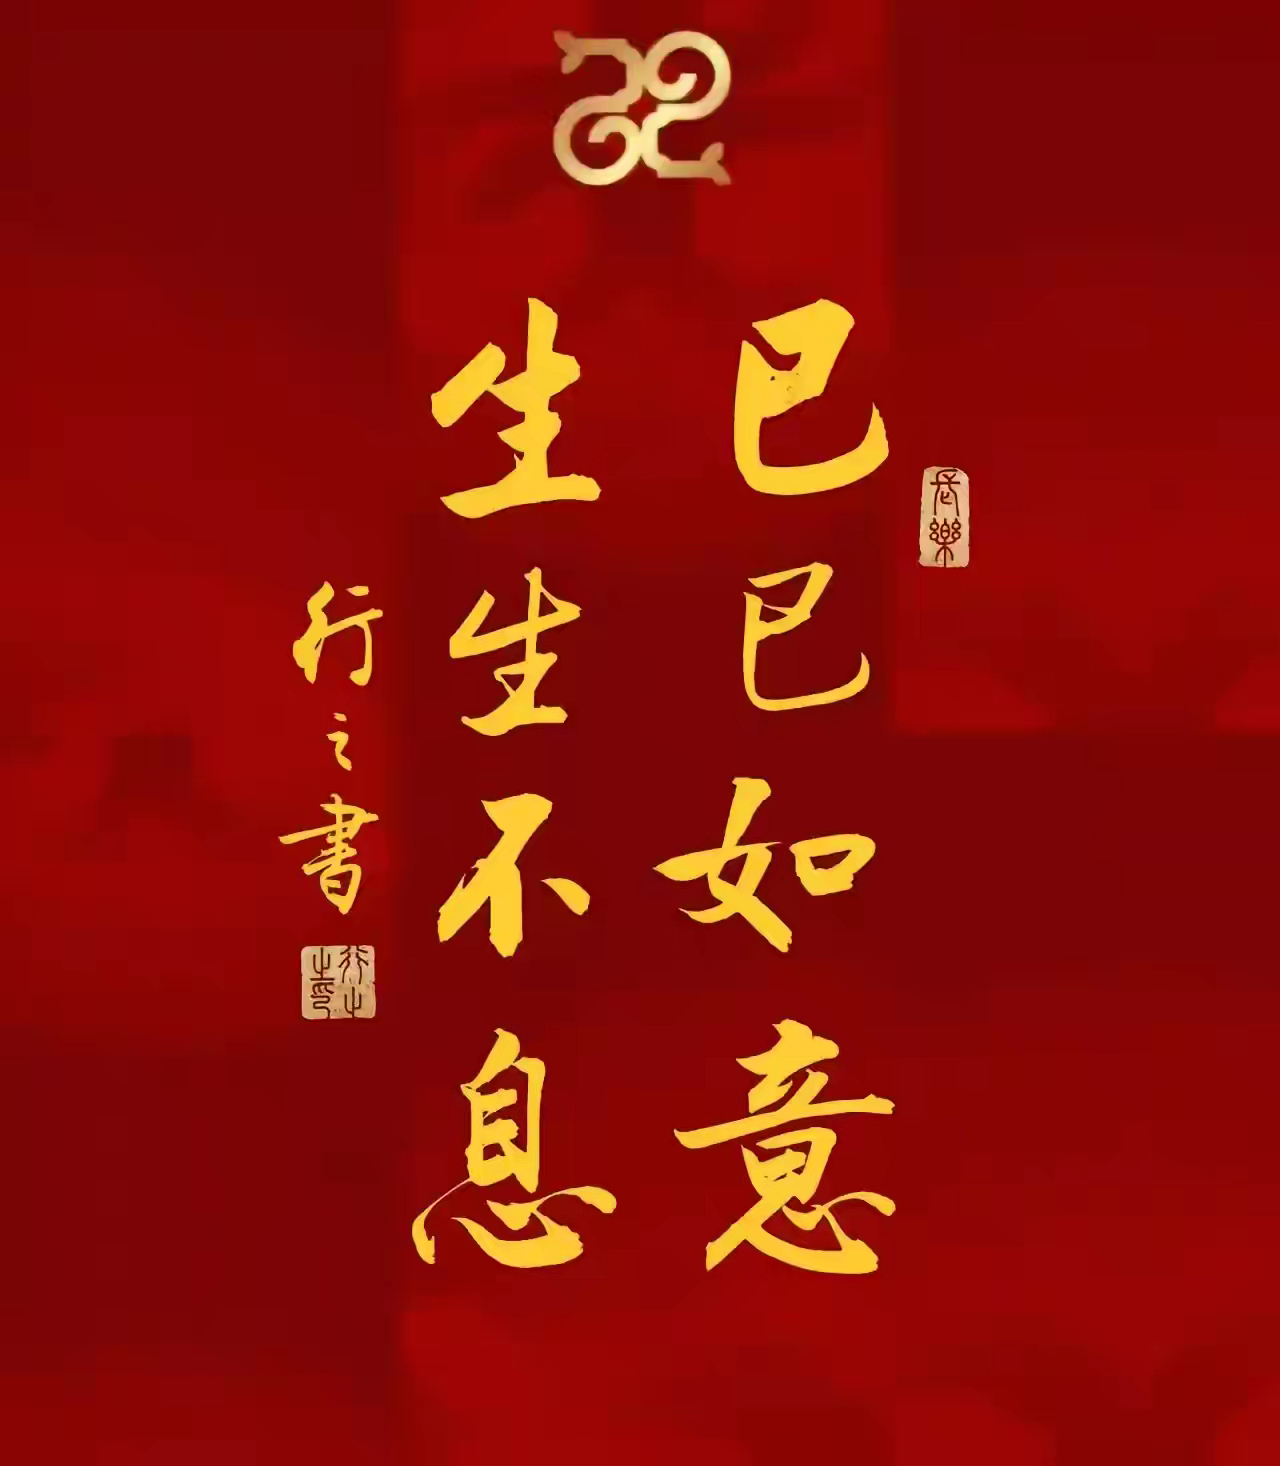 巳巳如意
生生不息
行之書
長樂